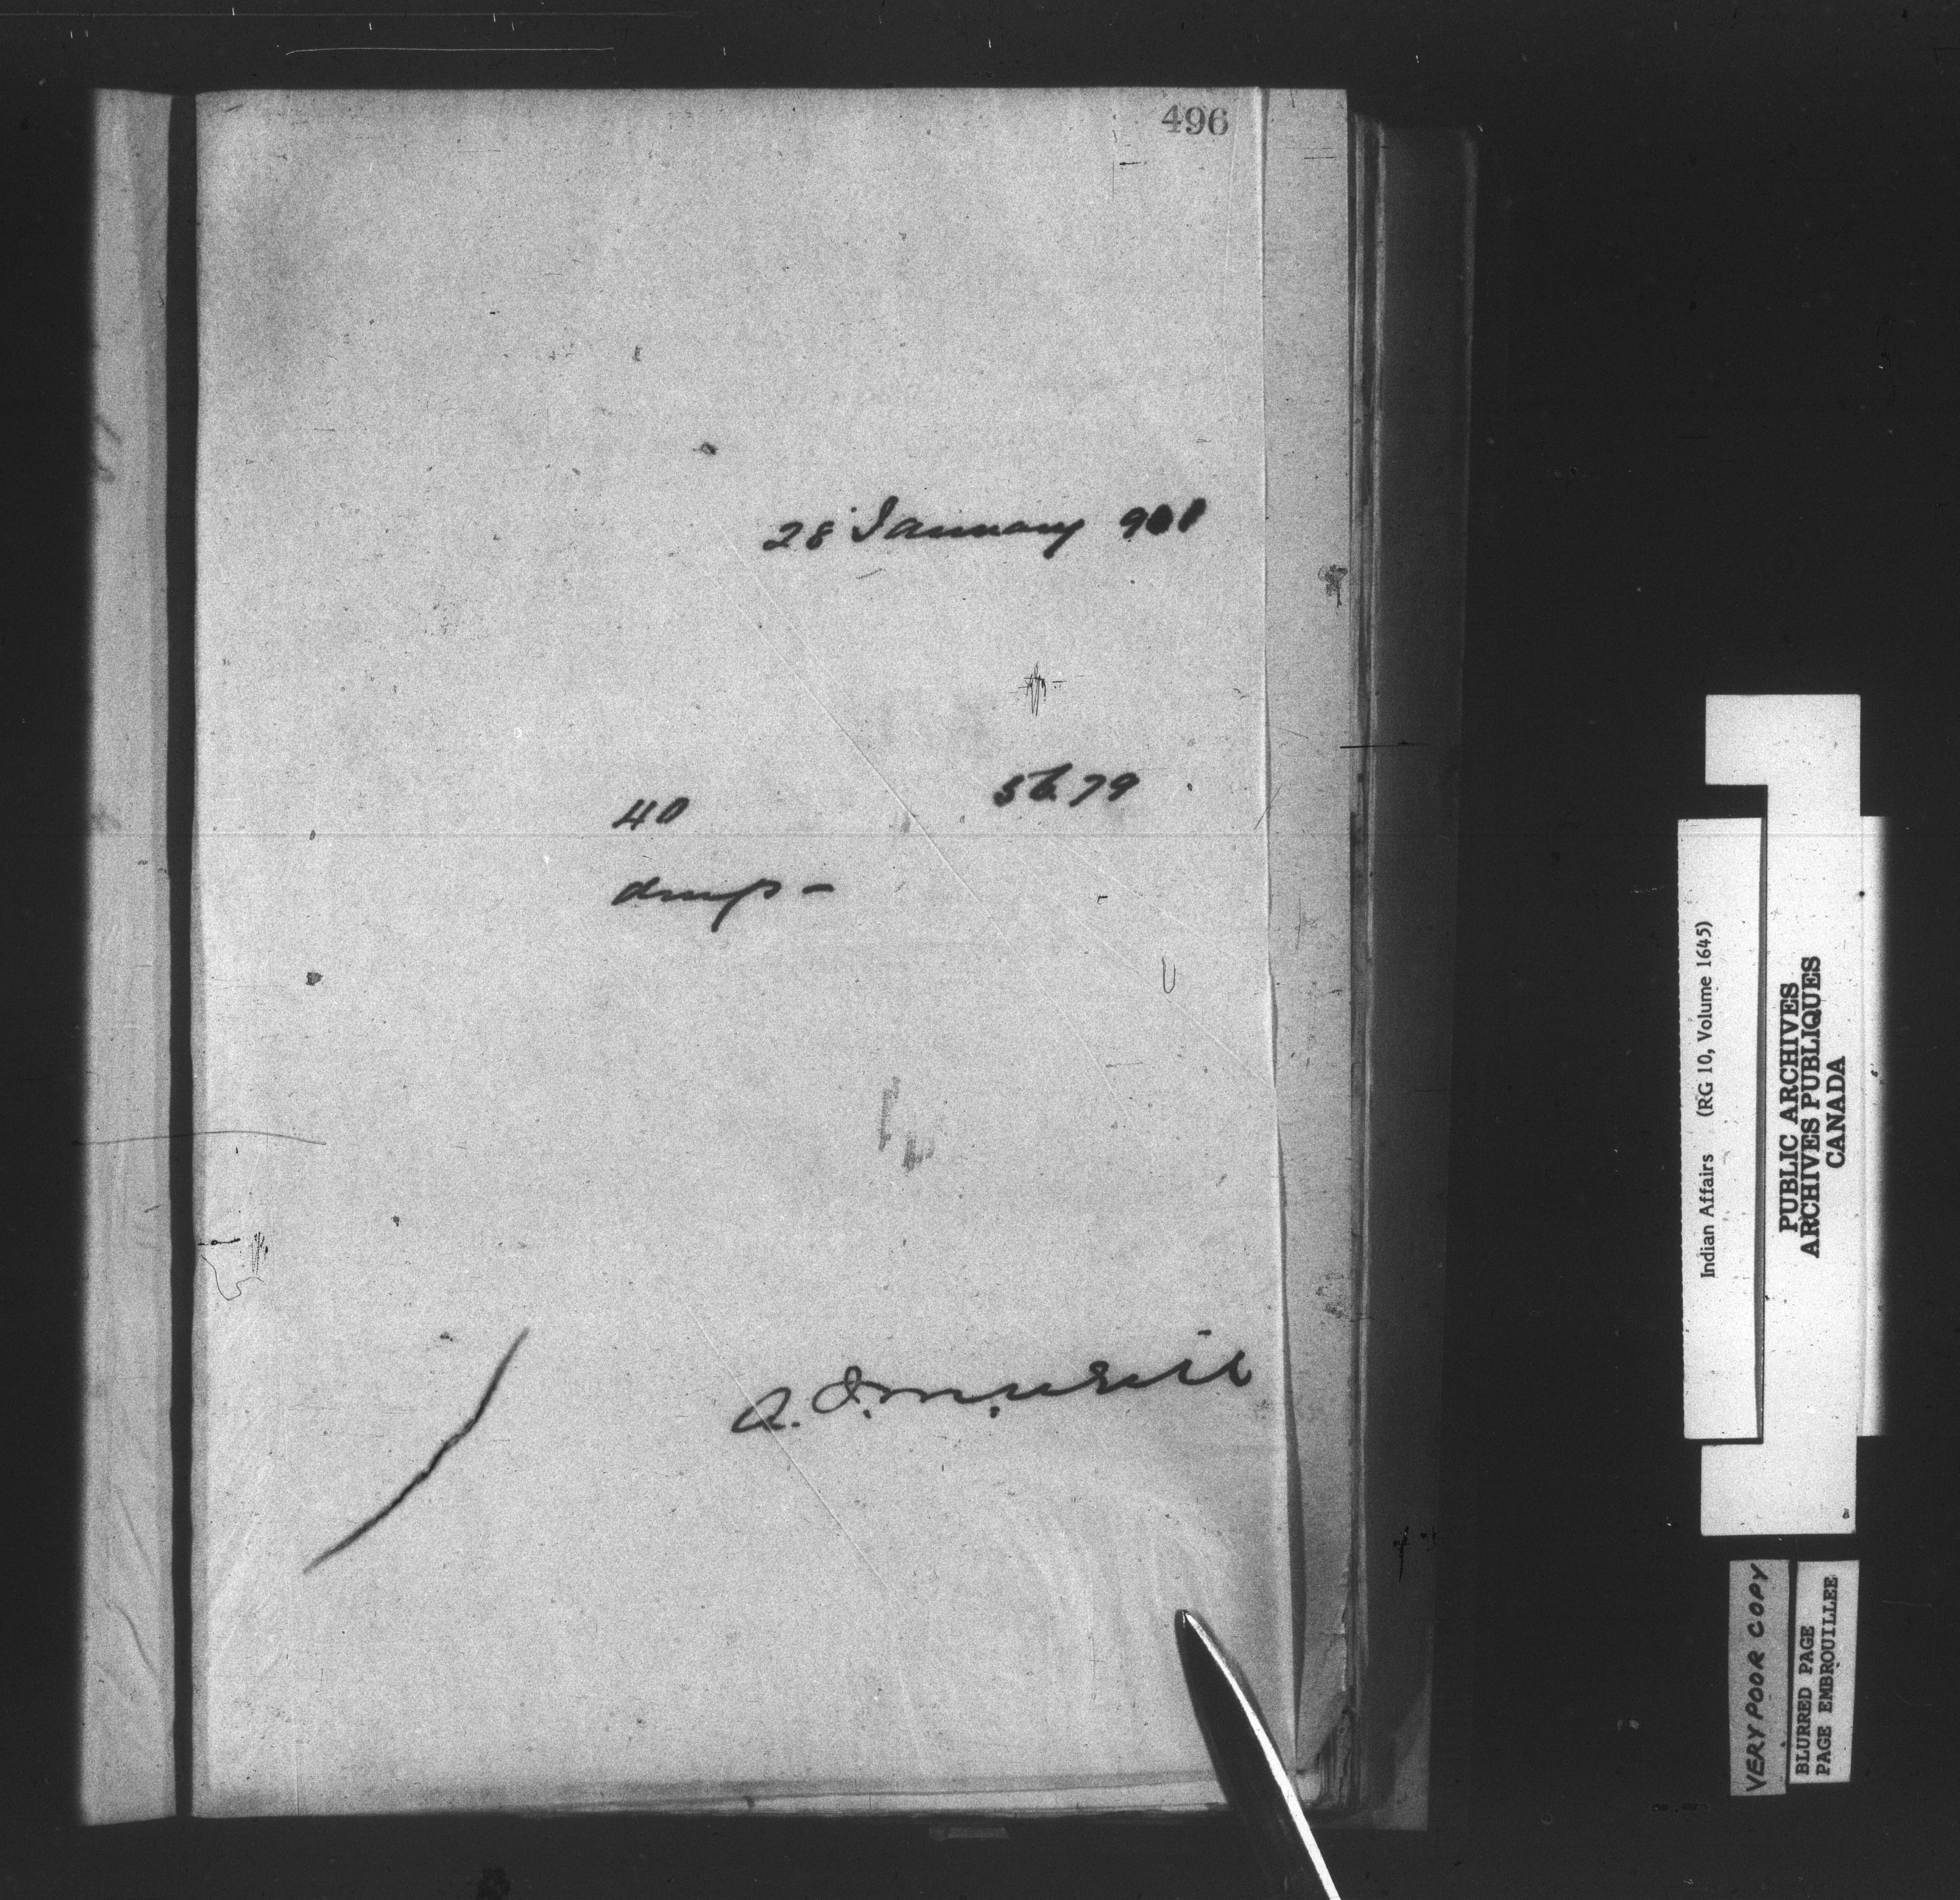 496
28 January 901
56.79
40
drugs -
Indian Affairs (RG 10, Volume 1645)
PUBLIC ARCHIVES
ARCHIVES PUBLIQUES
CANADA
VERY POOR COPY
BLURRED PAGE
PAGE EMBROUILLEE